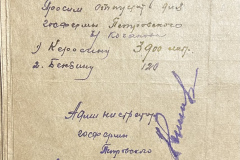 Просим отпустить для
госфермы Петровского
1) Керосину 3900 кгр.
2. Бензину 120
Администратор
госфермы
Петровского